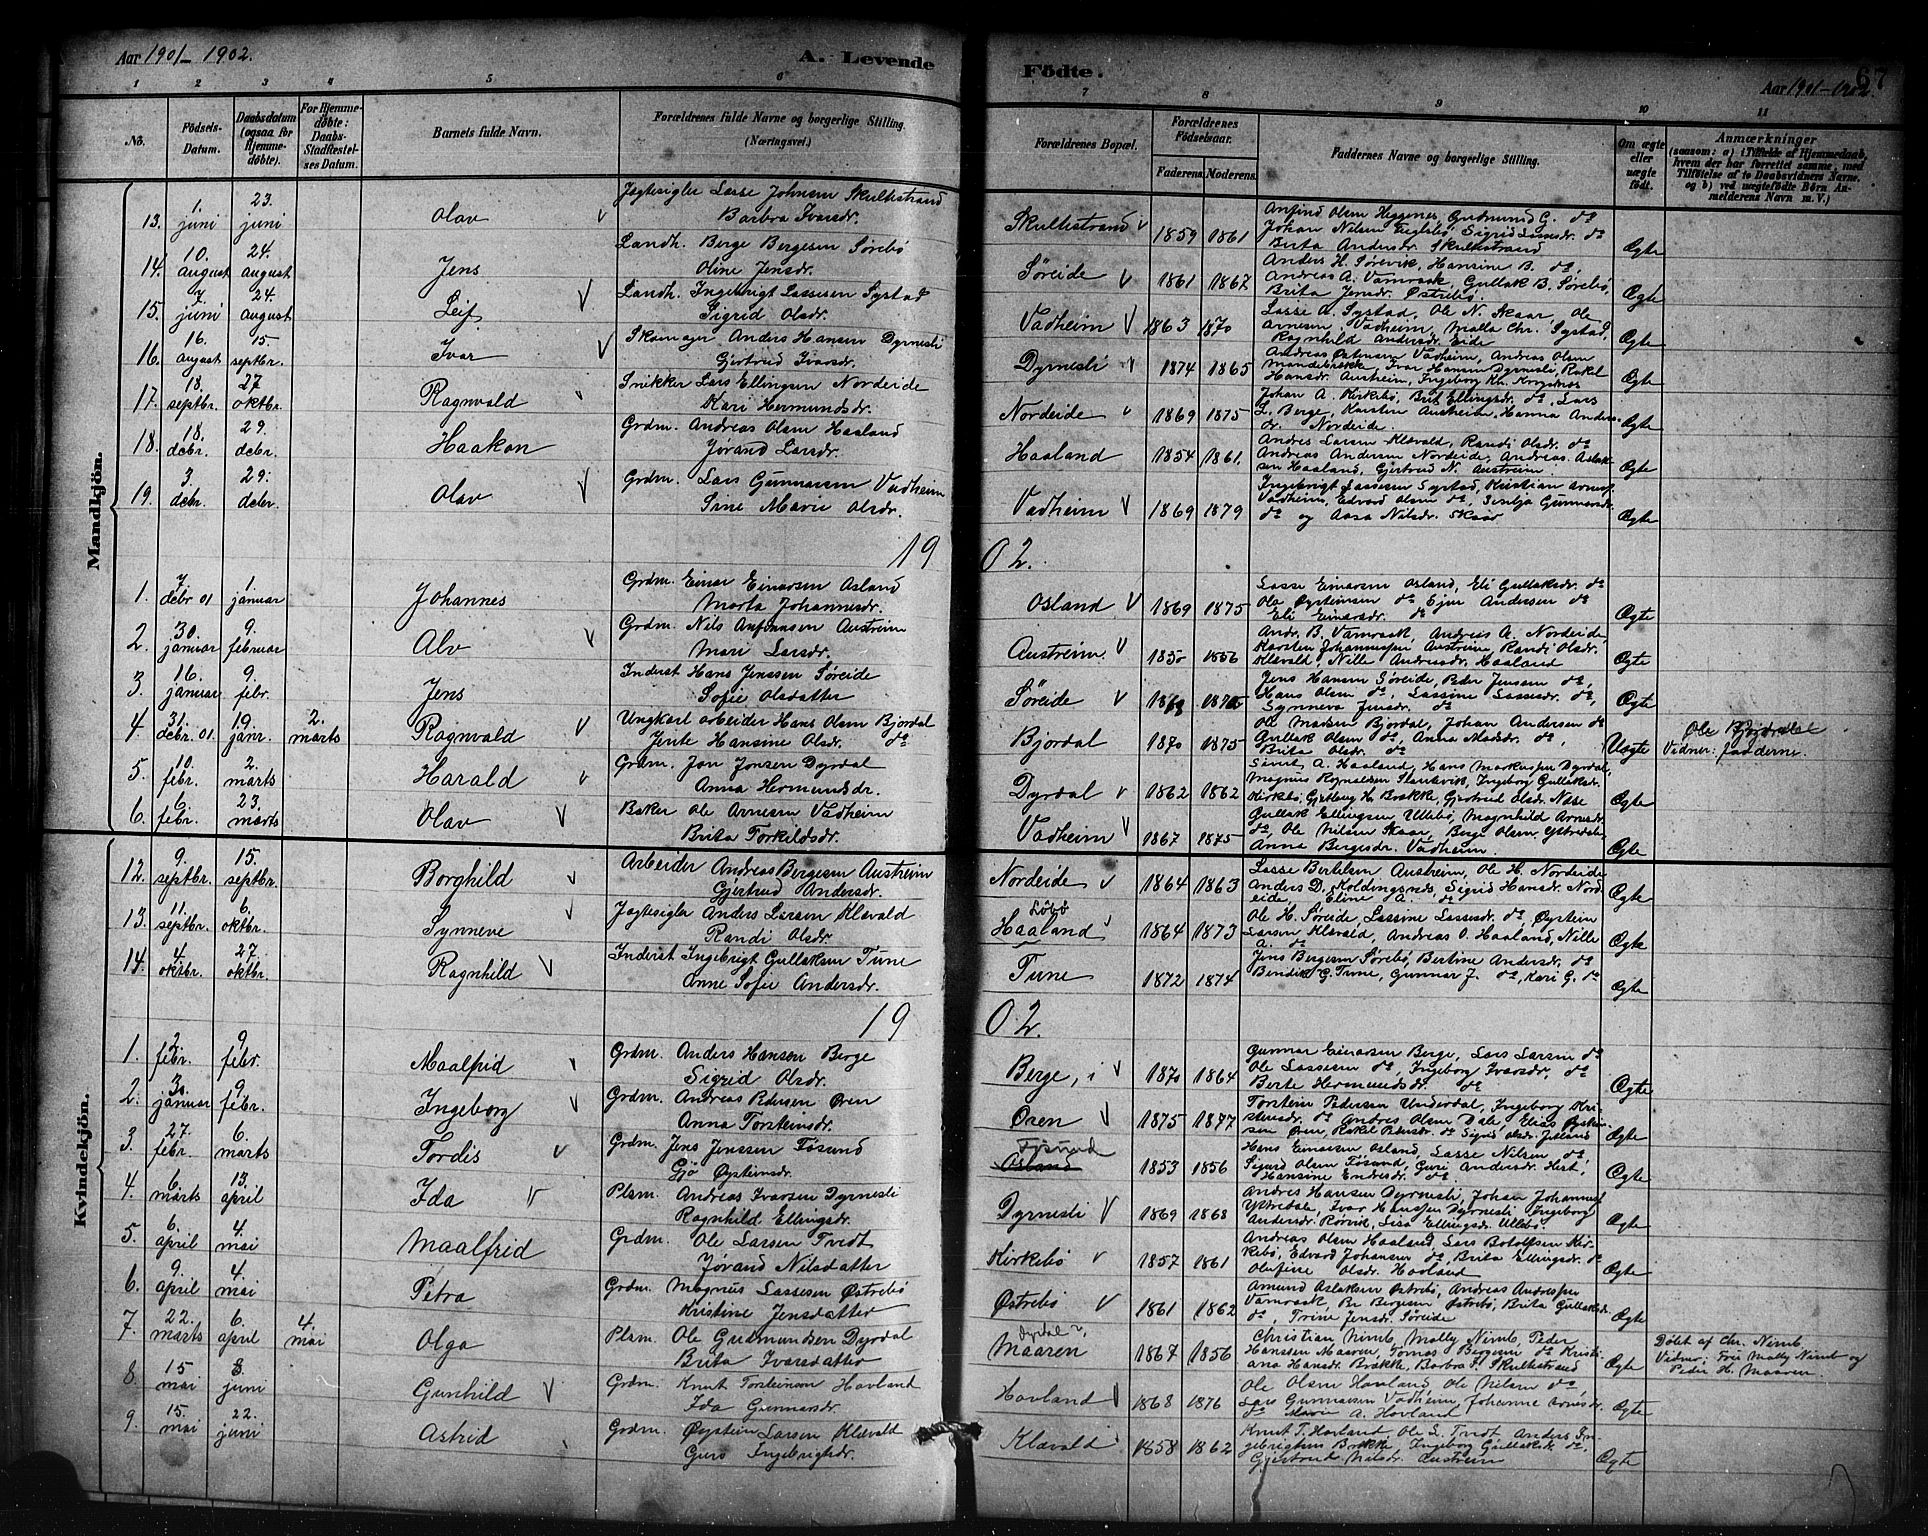 Aar 1901 - 1902. A. Levende Födte. Aar 1901-1902. 67
1 2 3 4 5 6 7 8 9 10 11
No. Födsels-Datum. Daabsdatum (ogsaa for Hjemmedöbte). For Hjemmedöbte: Daabs-Stadfæstelses Datum. Barnets fulde Navn. Forældrenes fulde Navne og borgerlige Stilling. (Næringsvei.) Forældrenes Bopæl. Forældrenes Födselsaar. Faderens. Moderens. Faddernes Navne og borgerlige Stilling. Om ægte eller uægte födt. Anmærkninger (saasom: a) i Tilfælde af Hjemmedaab, hvem der har forrettet samme, med Tilföielse af to Daabsvidners Navne. og b) ved uægtefödte Börn Anmelderens Navn m. V.)
Mandkjön.
13. 1. juni 23. juni Olav Jagtesigler Lasse Johnsen Skulkestrand
Barbra Ivarsdr. Skulkestrand 1859 1861 Anfind Olsen Heggenes, Gudmund G. do
Brita Andersdr. Skulkestrand Ægte
14. 10. august 24. august Jens Landh. Berge Bergesen Sørebø
Oline Jensdr. Søreide 1861 1867 Anders H. Sørevik, Hansine B. do,
Andreas A. Vamraak, Gullak B. Sørebø,
Brita Jensdr. Østrebø. Ægte
15. 7. juni 24. august Leif Landh. Ingebrigt Lassesen Systad
Sigrid Olsdr. Vadheim 1863 1870 Lasse A. Systad, Ole N. Skaar, Ole
Arnesen, Vadheim, Malla Chr. Systad,
Ragnhild Andersdr. Eide Ægte
16. 16. august 15. septbr. Ivar Skomager Anders Hansen Dyrnesli
Gjertrud Ivarsdr. Dyrnesli 1874 1865 Andreas Østensen Vadheim, Andreas Olsen
Ivar Hansen Dyrnesli, Rakel
Hansdr. Austreim, Ingeborg Ægte
17. 18. septbr. 27 oktbr. Ragnvald Snikker Lars Ellingsen Nordeide
Kari Hermundsdr. Nordeide 1869 1875 Johan A. Kirkebø, Brit Ellingsdr. do, Lars
L. Berge, Karsten Austreim, Hanna Anders-
dr. Nordeide. Ægte
18. 18. debr. 29. debr. Haakon Grdm. Andreas Olsen Haaland
Jørand Larsdr. Haaland 1854 1861. Andres Larsen Klævald, Randi Olsdr. do
Andreas Andersen Nordeide, Andreas Aslak-
sen Haaland, Gjertrud N. Austreim. Ægte
19. 3. debr. 29. debr. Olav Grdm. Lars Gunnarsen Vadheim
Sine Marie Olsdr. Vadheim 1869 1879 Ingebrigt Lassesen Systad, Kristian
Vadheim, Edvard Olsen do, Gunnarsdr.
do og Aasa Nilsdr. Skaar Ægte
1902.
1. 7. debr 01 1. januar Johannes Grdm. Einar Einarsen Osland
Marta Johannesdr. Osland 1869 1875 Lasse Einarsen Osland, Eli Gullaksdr. do
Ola Øysteinsen do Ejur Andersen do
Eli Einarsdr. do Ægte
2. 30. januar 9. februar Alv Grdm. Nils Anfinnsen Austreim
Mari Larsdr. Austreim. 1850 1856 Andr. B. Vamraak, Andreas A. Nordeide
Karsten Johannessen Austreim Randi Olsdr.
Klævald, Nille Andreasdr. Haaland Ægte
3. 16. januar 9. febr. Jens Inderst Hans Jenssen Søreide
Sofie Olsdatter Søreide Jens Hansen Søreide, Peder Jensen do,
Hans Olsen do, Lassine Lassesdr. do,
Synneva Jensdr. do Ægte
4. 31. debr. 01. 19. janr. 2. marts Ragnvald Ungkarl arbeider Hans Olsen Bjordal
Jente Hansine Olsdr. do Bjordal 1870 1875 Ole Madsen Bjordal, Johan Andersen do
Gullak Olsen do, Anna Madsdr. do,
Brita Olsdr. do Uægte Ole Bjordal
Vidner: fadderne.
5. 10. febr. 2. marts Harald Grdm. Jon Jonsen Dyrdal
Anna Hermundsdr. Dyrdal 1862 1862 A. Haaland, Hans Markussen Dyrdal,
Magnus Ragnaldsen Slankevik, Ingeborg Gullaksdr.
Kirkebø, H. Brække, Gjertrud Olsdr. Nese Ægte
6. 6. febr. 23. marts Olav Baker Ole Arnesen Vadheim
Brita Torkildsdr. Vadheim 1867 1875 Gullak Ellingsen Ullebø, Magnhild Arnesdr.
do, Ole Nilsen Skaar, Berge Olsen Ytredale
Anna Bergesdr. Vadheim. Ægte
Kvindekjön.
12. 9. septbr. 15. septbr. Borghild Arbeider Andreas Bergesen Austreim
Gjertrud Andersdr. Nordeide 1864 1863 Lasse Bertelsen Austreim, Ole H. Nordeide
Anders D. Koldingsnes, Sigrid Hansdr. Nord-
eide, Eline A. do Ægte
13. 11. septbr. 6. oktbr. Synneve Jagtesigler Anders Larsen Klævald
Randi Olsdr. Løbø
Haaland 1864 1873 Ole H. Søreide Lassine Lassesdr. do Øystein
Larsen Klævald, Andreas O. Haaland, Nille
A. do Ægte
14. 4. oktbr. 27. oktbr. Ragnhild Inderst Ingebrigt Gullaksen Tune
Anne Sofie Andersdr. Tune 1872 1874 Jens Bergesen Sørebø, Bertine Andersdr. do,
Bendik G. Tune, Gunnar J. do, Kari G. do Ægte
1902.
1. 2. febr. 9. febr. Maalfrid Grdm. Anders Hansen Berge
Sigrid Olsdr. Berge, i 1870 1864 Gunnar Einarsen Berge, Lars Larsen do
Ole Lassesen do, Ingeborg Ivarsdr, do
Berte Hermundsdr. do Ægte
2. 30. januar 9. febr. Ingeborg Grdm. Andreas Pedersen Øren
Anna Torsteinsdr. Øren 1875 1877 Torstein Pedersen Underdal, Ingeborg Kri-
stensdr. do Andres Olsen Dale, Elias Øystein-
sen Øren, Rakel Pedersdr. do Sigrid Olsdr. Ægte
3. 27. febr 6. marts Tordis Grdm. Jens Jenssen Føsund
Gjø Øysteinsdr. Føsund
Osland 1853 1856 Hans Einarsen Osland, Lasse Nilsen do
Sigurd Olsen Føsund, Guri Andersdr. Hest,
Hansine Endresdr. do Ægte
4. 6. marts 13. april Ida Plsm. Andreas Ivarsen Dyrnesli
Ragnhild Ellingsdr. Dyrnesli 1869 1868 Andres Hansen Dyrnesli, Johan Johannes
Ytredale, Ivar Hanssen Dyrnesli Ingeborg
Andersdr. Rørvik, Lisa Ellingsdr. Ullebø Ægte
5. 6. april 4. mai Maalfrid Grdm. Ole Larsen Tvedt
Jørand Nilsdatter Kirkebø 1857 1861 Andreas Olsen Haaland, Lars Botolfsen Kir-
kebø, Edvard Johansen do, Brita Ellingsdr. do
Olsdr. Hovland Ægte
6. 9. april 4. mai Petra Grdm. Magnus Lassesen Østrebø
Kristine Jensdatter Østrebø 1861 1862 Amund Aslaksen Østrebø, Andreas Andressen
Vamraak, Br Bergesen Østrebø, Brita Gullaksdr.
do, Trine Jensdr. Søreide Ægte
7. 22. marts 6. april 4. mai Olga Plsm. Ole Gudmundsen Dyrdal
Brita Ivarsdatter Dyrdal
Maaren 1867 1856 Christian Nimb, Mally Nimb, Peder
Hanssen Maaren, Tomas Bergesen do Kristi-
ana Hansdr. Brække, Barbra I. Skulkestrand Ægte Døbt af Chr. Nimb.
Vidner: Fru Mally Nimb og
Peder H. Maaren.
8. 15 mai 8. juni Gunhild Grdm. Knut Torsteinson Hovland
Ida Gunnarsdr. Hovland 1868 1876 Ole Olsen Hovland Ole Nilsen do
Lars Gunnarsen Vadheim, Johanne Arnesdr.
do Marie A. Hovland Ægte
9. 15. mai 22. juni Astrid Grdm. Øystein Larsen Klævald
Guro Ingebrigtsdr. Klævald 1858 1862 Knut T. Hovland, Ole L. Tvedt Anders In-
gebrigtsen Brække, Ingeborg Gullaksdr. do,
Gjertrud Nilsdr. Austreim Ægte